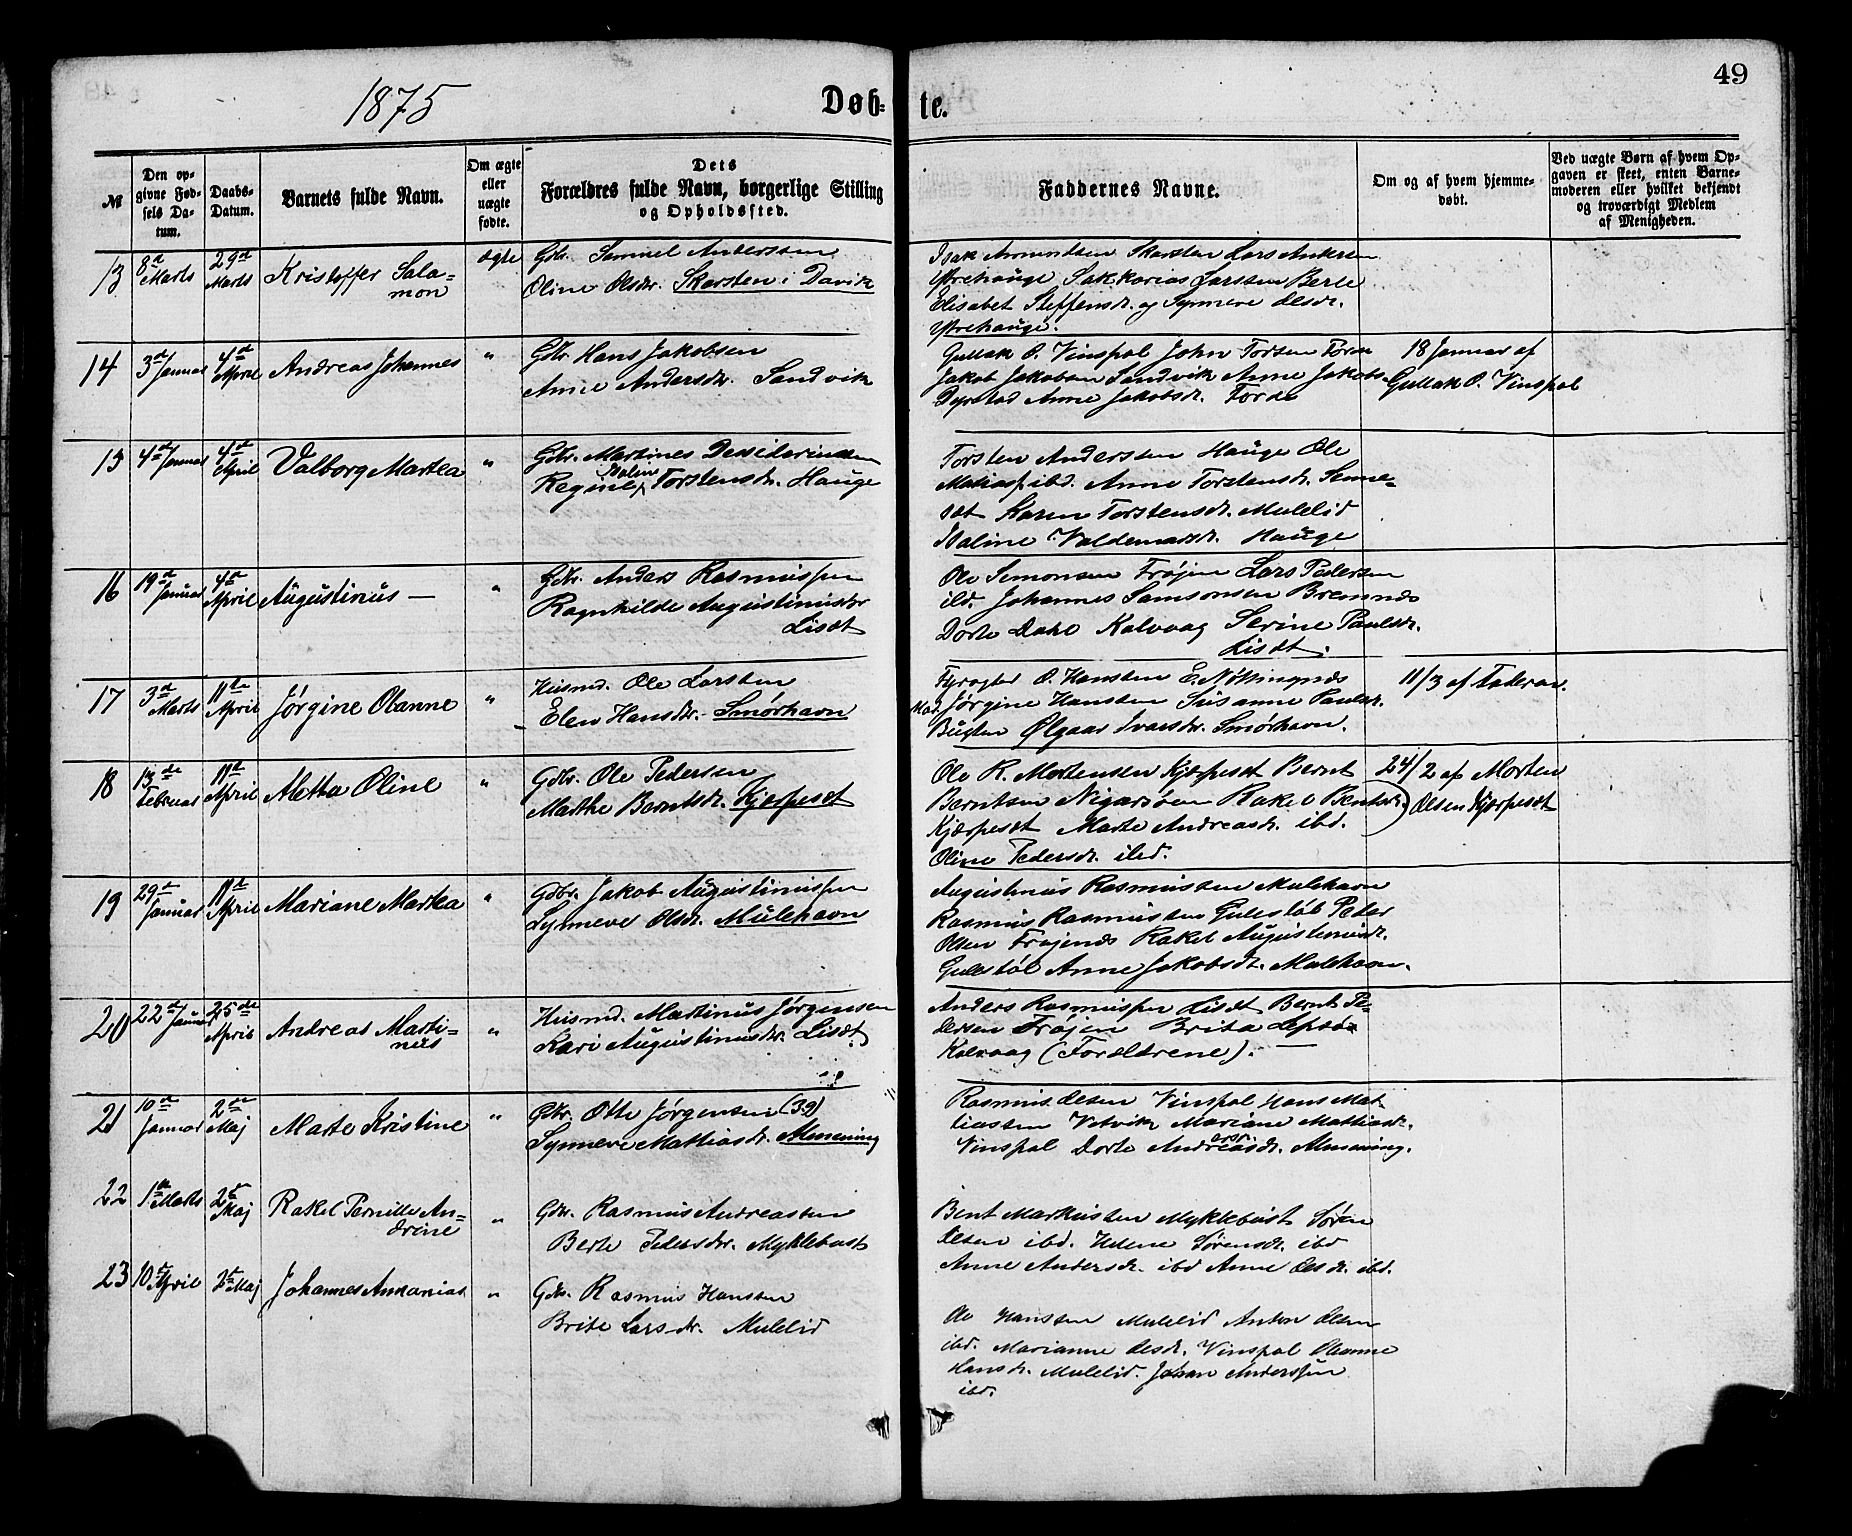 1875
Døb-
te.
49
№
Den op-
givne Fød-
sels Da-
tum.
Daabs-
Datum.
Barnets fulde Navn.
Om ægte
eller
uægte
fødte.
Dets
Forældres fulde Navn, borgerlige Stilling
og Opholdssted.
Faddernes Navne.
Om og af hvem hjemme-
døbt.
Ved uægte Børn af hvem Op-
gaven er skeet, enten Barne-
moderen eller hvilket bekjendt
og troværdigt Medlem
af Menigheden.
13
8de
Marts
29de
Marts
Kristoffer Sala-
mon
ægte
Gbr. Samuel Anderssen
Oline Olsdr. Skorsten i Davik
Isak Amundsen Skorsten Lars Andersen
Ytrehauge Sakkarias Larssen Berle
Elisabet Steffensdr. og Synneve Olsdr.
Ytrehauge.
14
3de Januar
4de
April
Andreas Johannes
"
Gbr. Hans Jakobsen
Anne Andersdr. Sandvik
Gullak O. Vinspol John Torsen Førde
Jakob Jakobsen Sandvik Anne Jakobs-
Dyrstad Anne Jakobsdr. Førde
18 Januar af
Gullak O. Vinspol
15
4de Januar
4de
April
Valborg Martea
"
Gbr. Martines Dessideriussen
Regine Malin Torstensdr. Hauge
Torsten Anderssen Hauge Ole
ibd. Anne Torstensdr.
set Karen Torstensdr. Mulelid
Maline Valdemarsdr. Hauge
16
19de
Januar
4de
April
Augustinus —
"
Gbr. Anders Rasmussen
Ragnhilde Augustinusdr
Liset
Ole Simonsen Frøjen Lars Pedersen
ibd. Johannes Samsonsen Bremnes
Dorte Dahl Kalvaag Serine Paulsdr.
Liset.
17
3de
Marts
11te
April
Jørgine Olanne
"
Husmd. Ole Larssen
Elen Hansdr. Smørhavn
Fyrogter O. Hanssen
Mad. Jørgine Hanssen Susanne Paulsdr.
Ølgaar Ivarsdr. Smørhavn.
11/3 af Faderen.
18
13de
Februar
11te
April
Aletta Oline
"
Gbr. Ole Pedersen
Marthe Berntsdr. Kjærpeset
Ole R. Mortensen Kjærpeset Bernt
Berntsen Nigardsøen Rakel Berntsdr.
Kjærpeset Marte Andreasdr. ibd.
Oline Pedersdr. ibd.
24/2 af Morten
Olsen Kjærpeset
19
29de
Januar
11te
April
Mariane Martea
"
Gbr. Jakob Augustinussen
Synneve Olsdr. Mulehavn
Augustinus Rasmussen Mulehavn
Rasmus Rasmussen Gulestøl Peder
Olsen Frøjenes Rakel Augustinusdr.
Gulestøl Anne Jakobsdr. Mulehavn.
20
22de Januar
25de
April
Andreas Marti-
nus
"
Husmd. Martinus Jørgensen
Kari Augustinusdr. Liset
Anders Rasmussen Liset Bernt Pe-
dersen Frøjen Brita Lepsø
Kalvaag (Forældrene).
21
10de
Januar
2den
Maj
Marte Kristine
"
Gbr. Otte Jørgensen (39)
Synneve Mattiasdr. Almening
Rasmus Olsen Vinspol Hans Mat-
tiassen Vetvik Mariane Mattiasdr.
Vinspol Dorte Andreasdr. Almening.
22
1ste Marts
2den
Maj
Rakel Pernille An-
drine
"
Gbr. Rasmus Andreassen
Berte Pedersdr. Myklebust
Bent Markussen Myklebust Søren
Olsen ibd. Helene Sørensdr. ibd
Anne Andersdr. ibd Anne Olsdr. ibd.
23
10de April
2den Maj
Johannes Annanias
"
Gbr. Rasmus Hanssen
Brite Larsdr. Mulelid
Ole Hanssen Mulelid Anton Olsen
ibd. Marianne Olsdr. Vinspol Olianne
Hansdr. Mulelid. Johan Anderssen
ibd.